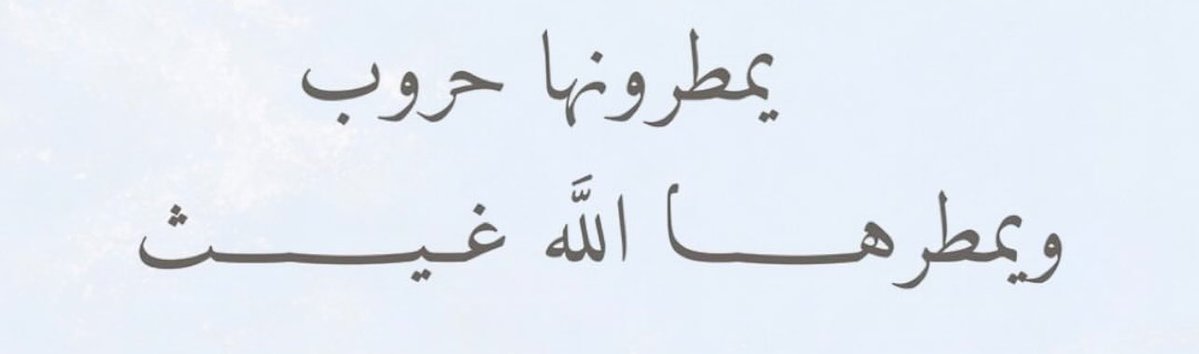 يمطرونها حروب
ويمطرهـــــا اللَّه غيـــــث